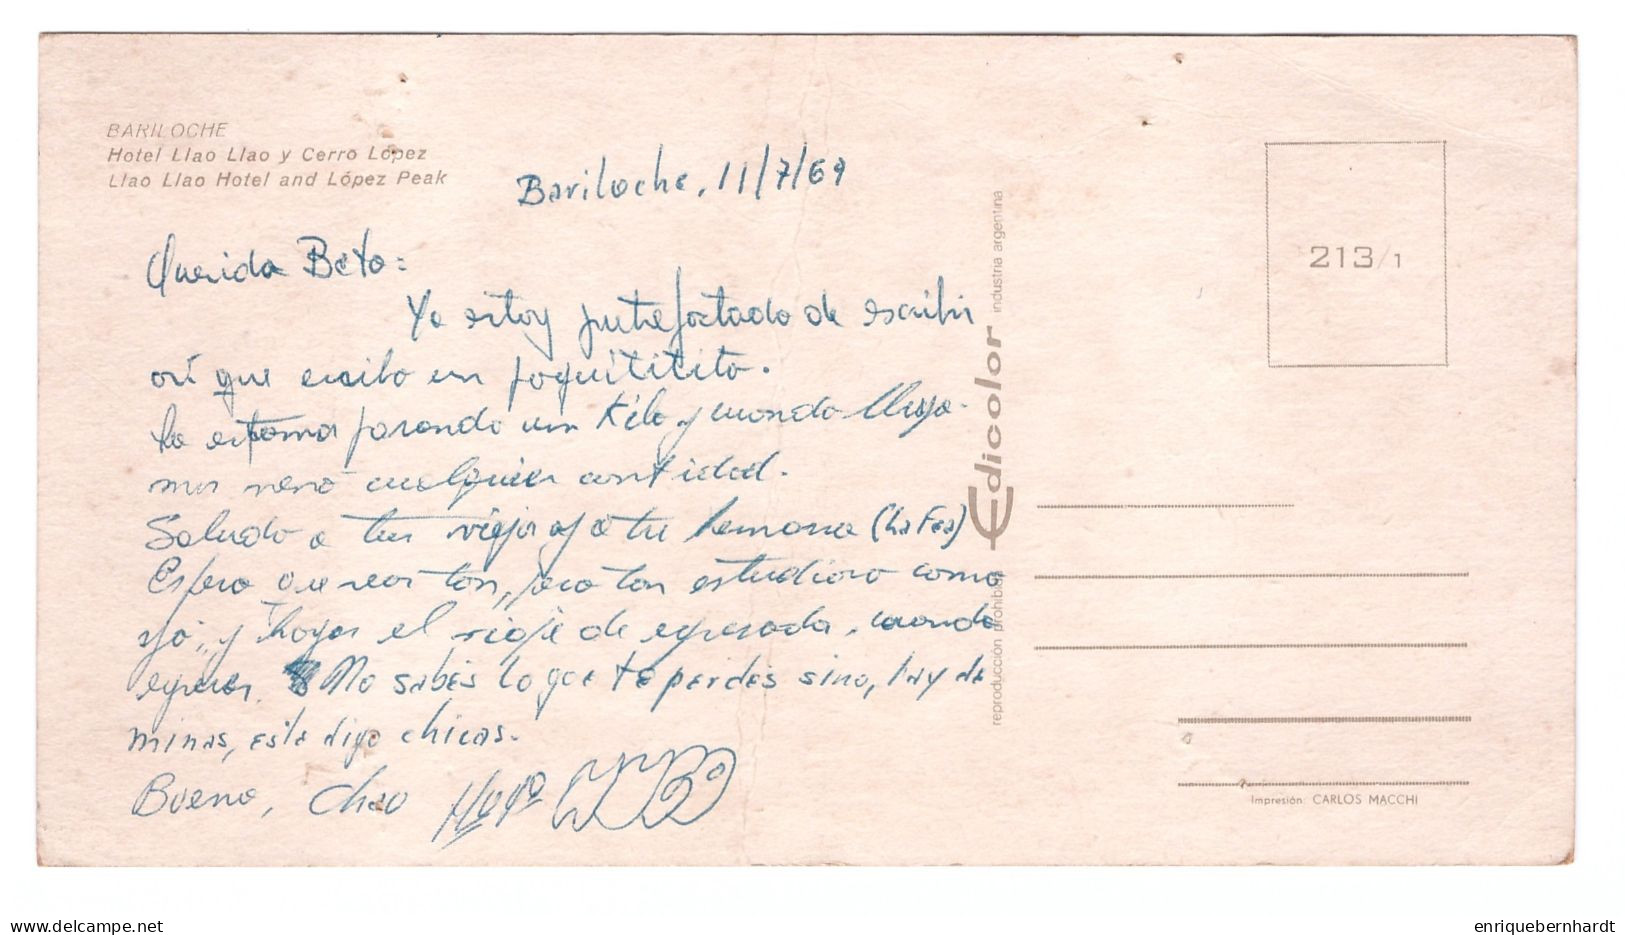 BARILOCHE
Hotel Llao Llao y Cerro López
Llao Llao Hotel and López Peak
Bariloche, 11/7/69
Querida Beto:
Yo estoy putrefactado de escribir
así que escribo un poquitititito.
La estamos pasando un kilo y cuando llega-
mos nevó cualquier cantidad.
Saludo a tus viejos y a tu hermana (La Fea)
Espero que seas tan, pero tan estudioso como
yo, y hagas el viaje de egresada, cuando
egreses. No sabés lo que te perdés sino, hay de
minas, este digo chicas.
Bueno, Chao
Edicolor industria argentina
reproducción prohibida
213/1
Impresión: CARLOS MACCHI
enriquebernhardt.com